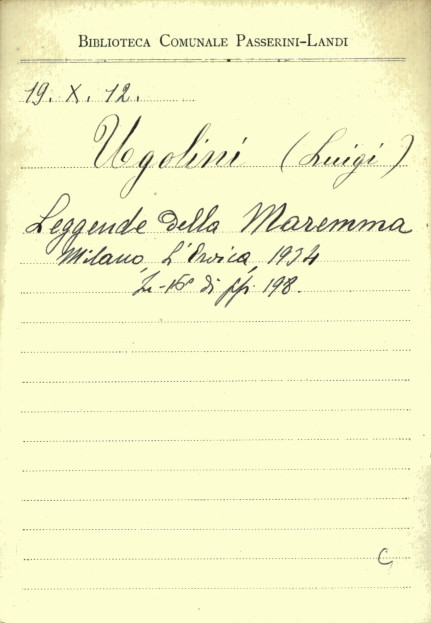 BIBLIOTECA COMUNALE PASSERINI-LANDI
19. X. 12.
Ugolini (Luigi)
Leggende della Maremma
Milano, L'Eroica, 1934
In-16° di pp. 198.
C